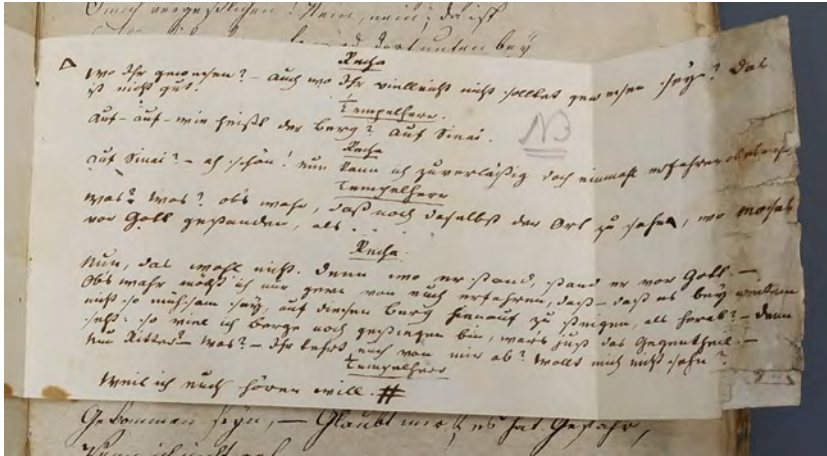 O mich vergeßlichen! Nein, nein; da ist
dort unten bey
Recha
Δ Wo Ihr gewesen? – Auch wo Ihr vielleicht nicht solltet gewesen seyn? Das
ist nicht gut.
Tempelherr.
Auf – auf – wie heißt der Berg? Auf Sinai.
NB
Recha
Auf Sinai? – ah schön! Nun kann ich zuverläßig doch einmal erfahren ob es wahr,
Tempelherr
Was? Was? Ob's wahr, daß noch daselbst der Ort zu sehn, wo Moses
vor Gott gestanden, als . .
Recha.
Nun, das wohl nicht. Denn wo er stand, stand er vor Gott. –
Ob's wahr möcht ich nur gern von euch erfahren, daß – daß es bey weitem
nicht so mühsam sey, auf diesen Berg hinauf zu steigen, als herab? – Denn
seht: so viel ich Berge noch gestiegen bin, war's just das Gegentheil. –
Nun Ritter – Was? – Ihr kehrt euch von mir ab? Wollt mich nicht sehn?
Tempelherr
Weil ich euch hören will. #
Gekommen seyn, – Glaubt mir, es hat Gefahr,
Wenn ich nicht geh.